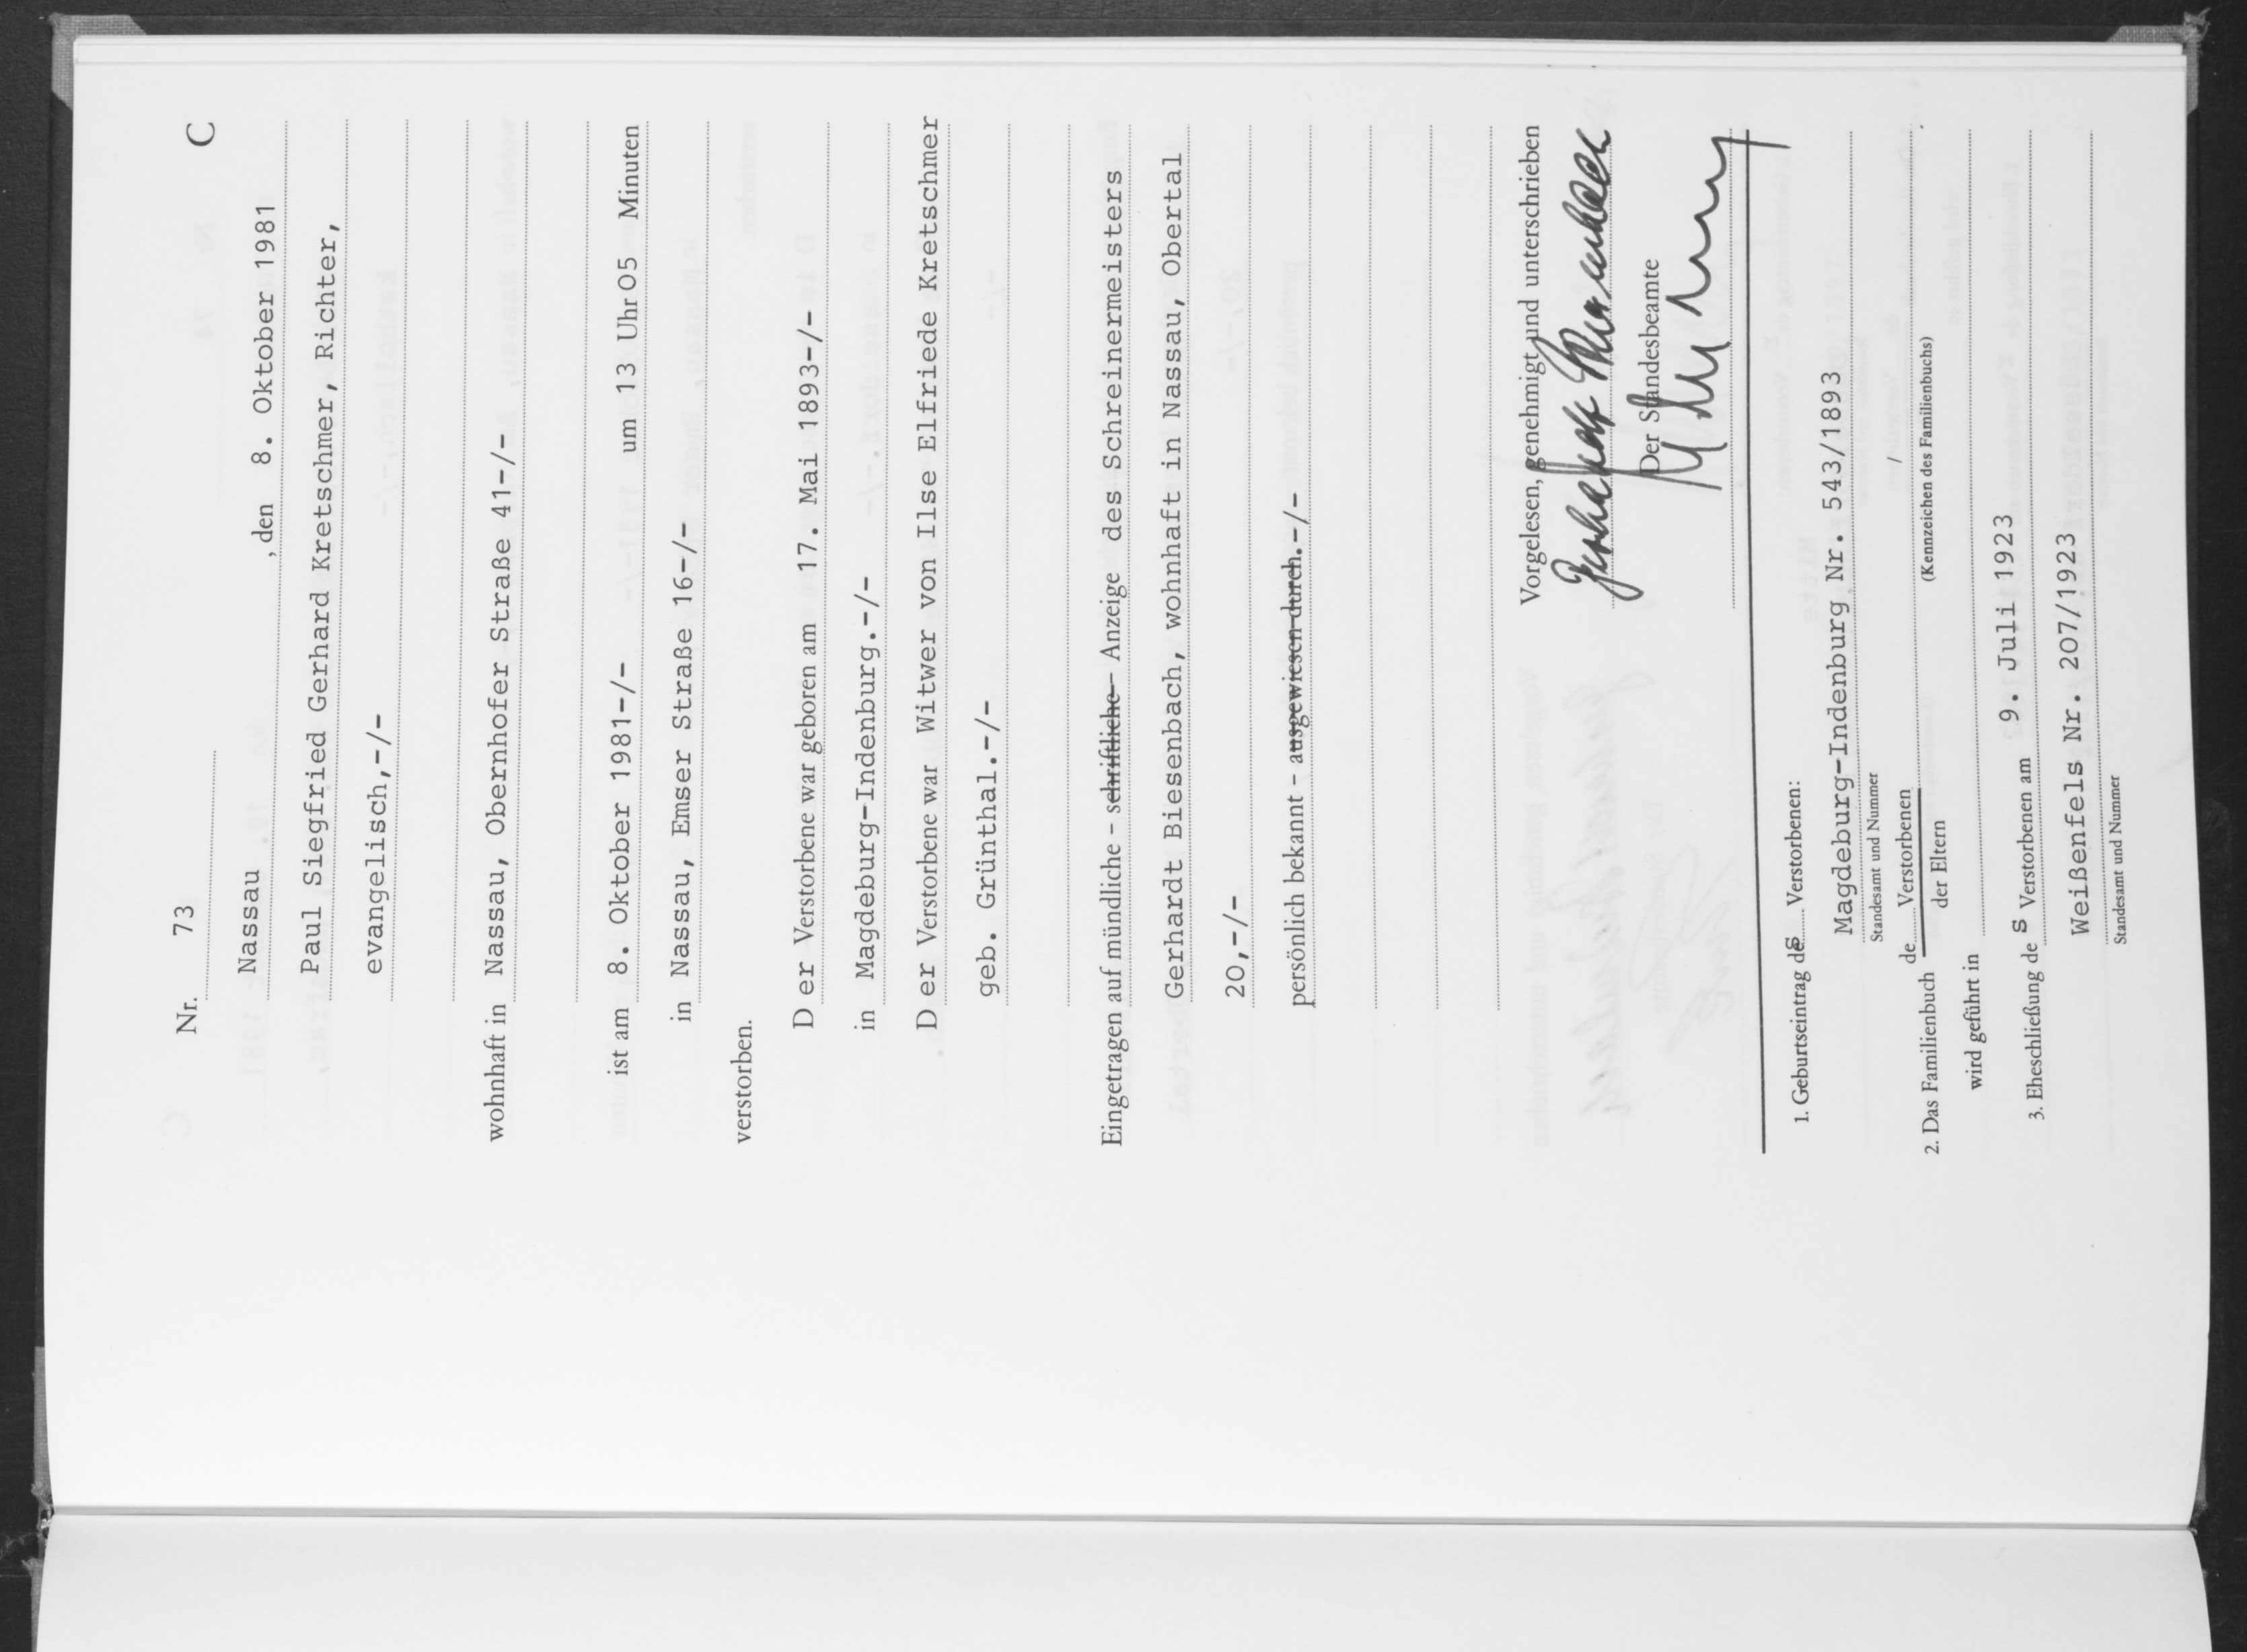 C
Nr. 73
Nassau, den 8. Oktober 1981
Paul Siegfried Gerhard Kretschmer, Richter,
evangelisch,-/-
wohnhaft in Nassau, Obernhofer Straße 41-/-
ist am 8. Oktober 1981-/- um 13 Uhr 05 Minuten
in Nassau, Emser Straße 16-/-
verstorben.
D er Verstorbene war geboren am 17. Mai 1893-/-
in Magdeburg-Indenburg.-/-
D er Verstorbene war Witwer von Ilse Elfriede Kretschmer
geb. Grünthal.-/-
Eingetragen auf mündliche - schriftliche - Anzeige des Schreinermeisters
Gerhardt Biesenbach, wohnhaft in Nassau, Obertal
20,-/-
persönlich bekannt - ausgewiesen durch.-/-
Vorgelesen, genehmigt und unterschrieben
Der Standesbeamte
1. Geburtseintrag des Verstorbenen:
Magdeburg-Indenburg Nr. 543/1893
Standesamt und Nummer
2. Das Familienbuch de Verstorbenen /
der Eltern
(Kennzeichen des Familienbuchs)
wird geführt in
3. Eheschließung de s Verstorbenen am 9. Juli 1923
Weißenfels Nr. 207/1923
Standesamt und Nummer